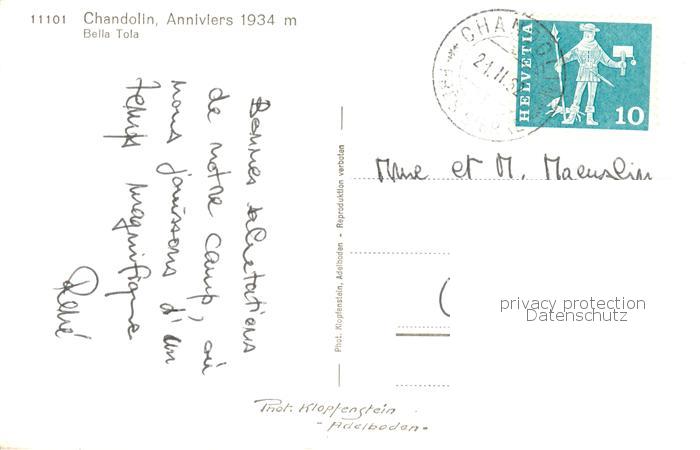 11101 Chandolin, Anniviers 1934 m
Bella Tola
Bonnes salutations
de notre camp, où
nous jouissons d'un
temps magnifique
René
Phot. Klopfenstein, Adelboden - Reproduktion verboten
CHANDOLIN
21.II.6
HELVETIA
10
Mme et M. Maeuslin
privacy protection
Datenschutz
Phot. Klopfenstein
- Adelboden -